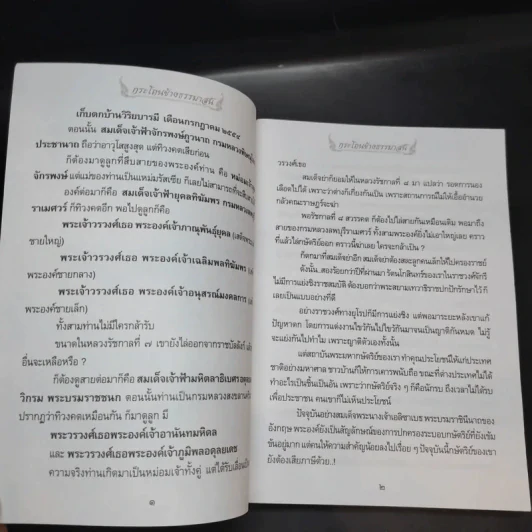 กระโถนข้างธรรมาสน์
เก็บตกบ้านวิริยบารมี เดือนกรกฎาคม ๒๕๕๔
ตอนนั้น สมเด็จเจ้าฟ้าจักรพงษ์ภูวนาถ กรมหลวงพิษณุโลก
ประชานาถ ถือว่าอาวุโสสูงสุด แต่ทิวงคตเสียก่อน
ก็ต้องมาดูลูกที่สืบสายของพระองค์ท่าน คือ
จักรพงษ์ แต่แม่ของท่านเป็นแหม่มรัสเซีย ก็เลยไม่สามารถ
องค์ต่อมาก็คือ สมเด็จเจ้าฟ้ายุคลทิฆัมพร กรมหลวง
ราเมศวร์ ก็ทิวงคตอีก พอไปดูลูกก็คือ
พระเจ้าวรวงศ์เธอ พระองค์เจ้าภาณุพันธุ์ยุคล
ชายใหญ่)
พระเจ้าวรวงศ์เธอ พระองค์เจ้าเฉลิมพลทิฆัมพร
พระองค์ชายกลาง)
พระเจ้าวรวงศ์เธอ พระองค์เจ้าอนุสรณ์มงคลการ
พระองค์ชายเล็ก)
ทั้งสามท่านไม่มีใครกล้ารับ
ขนาดในหลวงรัชกาลที่ ๗ เขายังไล่ออกจากราชบัลลังก์
อื่นจะเหลือหรือ ?
ก็ต้องดูสายต่อมาก็คือ สมเด็จเจ้าฟ้ามหิดลาธิเบศร
วิกรม พระบรมราชชนก ตอนนั้นท่านเป็นกรมหลวงสงขลานครินทร์
ปรากฏว่าทิวงคตเหมือนกัน ก็มาดูลูก มี
พระวรวงศ์เธอพระองค์เจ้าอานันทมหิดล
และ พระวรวงศ์เธอพระองค์เจ้าภูมิพลอดุลยเดช
ความจริงท่านเกิดมาเป็นหม่อมเจ้าทั้งคู่ แต่ได้รับเลื่อน
๑
กระโถนข้างธรรมาสน์
วรวงศ์เธอ
สมเด็จย่าก็ยอมให้ในหลวงรัชกาลที่ ๘ มา แปลว่า รอดการนอง
เลือดไปได้ เพราะว่าต่างก็เกี่ยงกันเป็น เพราะสถานการณ์ไม่ให้เอื้ออำนวย
กลัวคณะราษฎร์จะฆ่า
พอรัชกาลที่ ๘ สวรรคต ก็ต้องไปไล่สายกันเหมือนเดิม พอมาถึง
สายของกรมหลวงลพบุรีราเมศวร์ ทั้งสามพระองค์ยังไม่เอาใหญ่เลย คราว
ที่แล้วไล่กษัตริย์ออก คราวนี้ฆ่าเลย ใครจะกล้าเป็น ?
ก็ตกมาที่สมเด็จย่าอีก สมเด็จย่าต้องสละลูกคนเล็กให้ไปครองราชย์
ดังนั้น..สองร้อยกว่าปีที่ผ่านมา รัตนโกสินทร์ของเราในราชวงศ์จักรี
ไม่มีการแย่งชิงราชสมบัติ ต้องบอกว่าพระสยามเทวาธิราชปกปักรักษาไว้ ก็
เลยเป็นแบบอย่างที่ดี
อย่างราชวงศ์ทางยุโรปก็มีการแย่งชิง แต่พอมาระยะหลังเขาแก้
ปัญหาตก โดยการแต่งงานไขว้กันไปไขว้กันมาจนเป็นญาติกันหมด ไม่รู้
จะแย่งกันไปทำไม เพราะญาติตัวเองทั้งนั้น
แต่สถาบันพระมหากษัตริย์ของเราทำคุณประโยชน์ให้แก่ประเทศ
ชาติอย่างมหาศาล ชาวบ้านก็ให้การเคารพนับถือ ขณะที่ต่างประเทศไม่ได้
ทำอะไรเป็นชิ้นเป็นอัน เพราะว่ากษัตริย์จริง ๆ ก็คือนักรบ ถึงเวลาไม่ได้รบ
เพื่อประชาชน คนเขาก็ไม่เห็นประโยชน์
ปัจจุบันอย่างสมเด็จพระนางเจ้าอลิซาเบธ พระบรมราชินีนาถของ
อังกฤษ พระองค์ยังเป็นสัญลักษณ์ของการปกครองระบอบกษัตริย์ที่ยังเข้ม
ข้นอยู่มาก แต่คนให้ความสำคัญน้อยลงไปเรื่อย ๆ ปัจจุบันนี้กษัตริย์ของเขา
ยังต้องเสียภาษีด้วย..!
๒